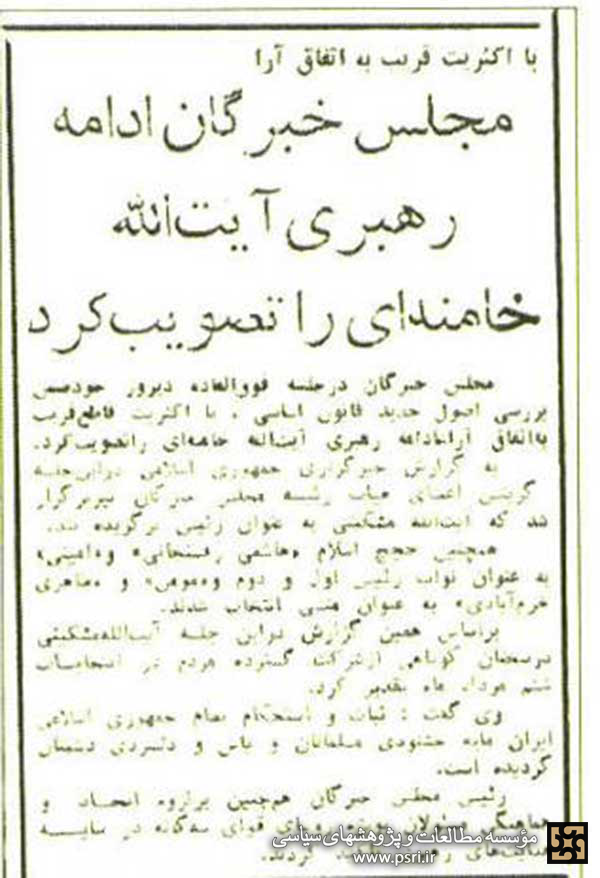 با اکثریت قریب به اتفاق آرا
مجلس خبرگان ادامه
رهبری آیت‌الله
خامنه‌ای را تصویب‌کرد
مجلس خبرگان درجلسه فوق‌العاده دیروز خودضمن
بررسی اصول جدید قانون اساسی ، با اکثریت قاطع‌قریب
به‌اتفاق آراءادامه رهبری آیت‌الله خامنه‌ای راتصویب‌کرد.
به گزارش خبرگزاری جمهوری اسلامی دراین‌جلسه
گزینش اعضای هیات رئیسه مجلس خبرگان نیزبرگزار
شد که آیت‌الله مشکینی به عنوان رئیس برگزیده شد.
همچنین حجج اسلام «هاشمی رفسنجانی» و«امینی»
به عنوان نواب رئیس اول و دوم و«مومن» و «طاهری
خرم‌آبادی» به عنوان منشی انتخاب شدند.
براساس همین گزارش دراین جلسه آیت‌الله‌مشکینی
درسخنان کوتاهی ازشرکت گسترده مردم در انتخابات
ششم مرداد ماه تقدیر کرد.
وی گفت : ثبات و استحکام نظام جمهوری اسلامی
ایران مایه خشنودی مسلمانان و یاس و دلسردی دشمنان
گردیده است.
رئیس مجلس خبرگان هم‌چنین برلزوم اتحاد و
هماهنگی مسئولان قوای سه‌گانه در سایه
کردند.
مؤسسه مطالعات و پژوهشهای سیاسی
www.psri.ir